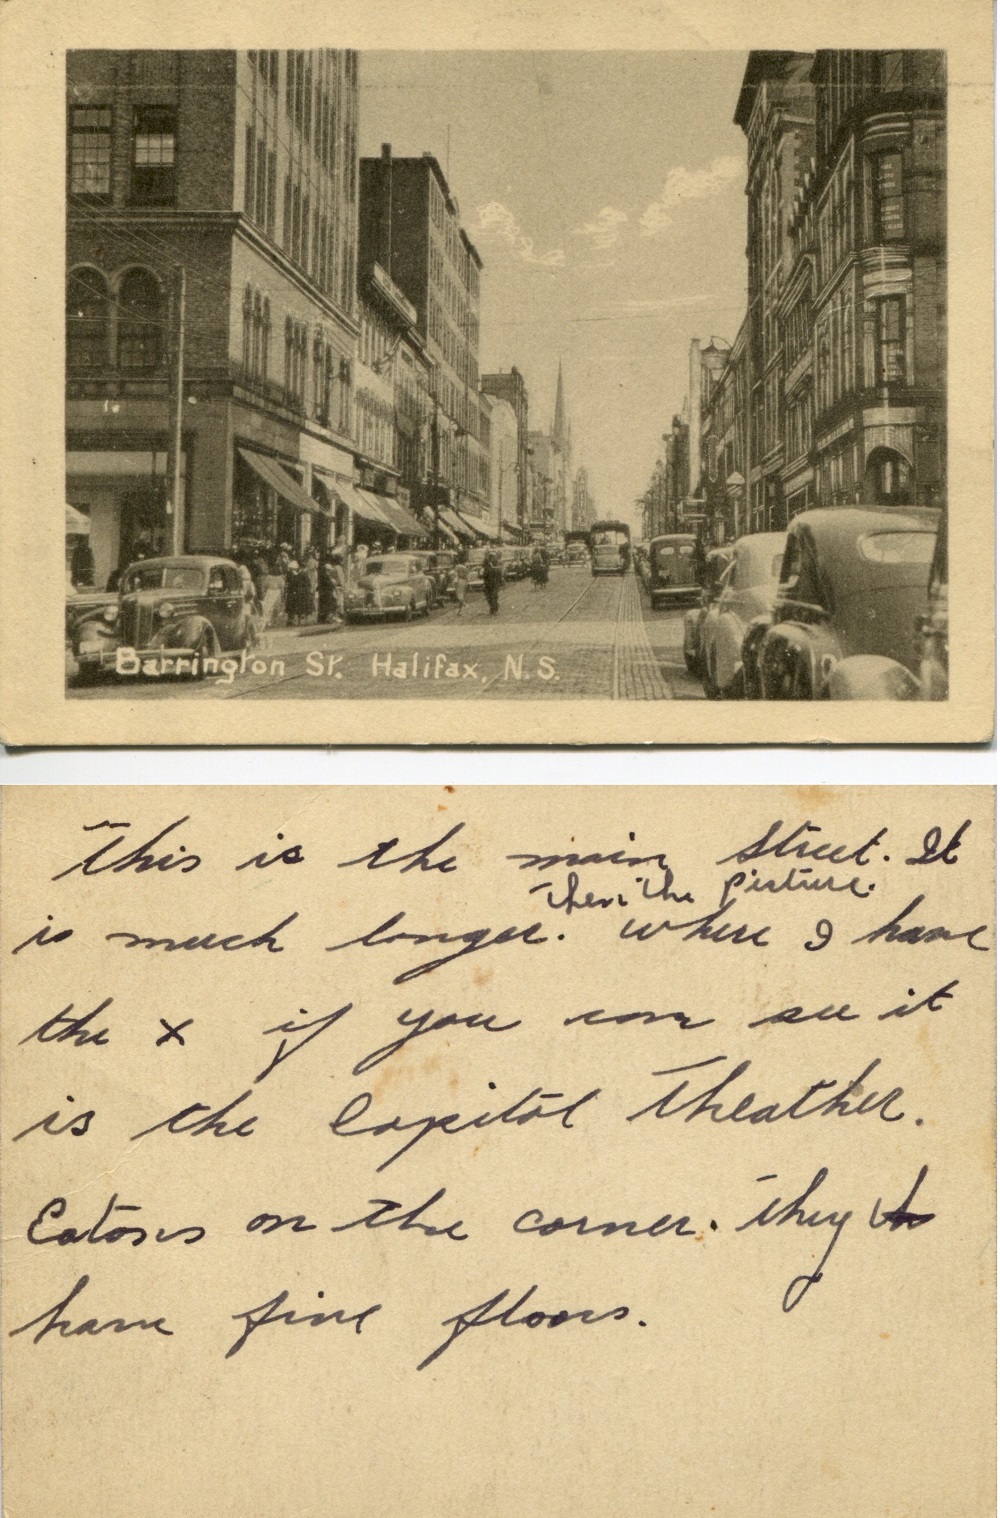 Barrington St. Halifax, N.S.
This is the main Street. It
then the picture.
is much longer. where I have
the x if you can see it
is the Capitol Theather.
Eatons on the corner. They
have five floors.